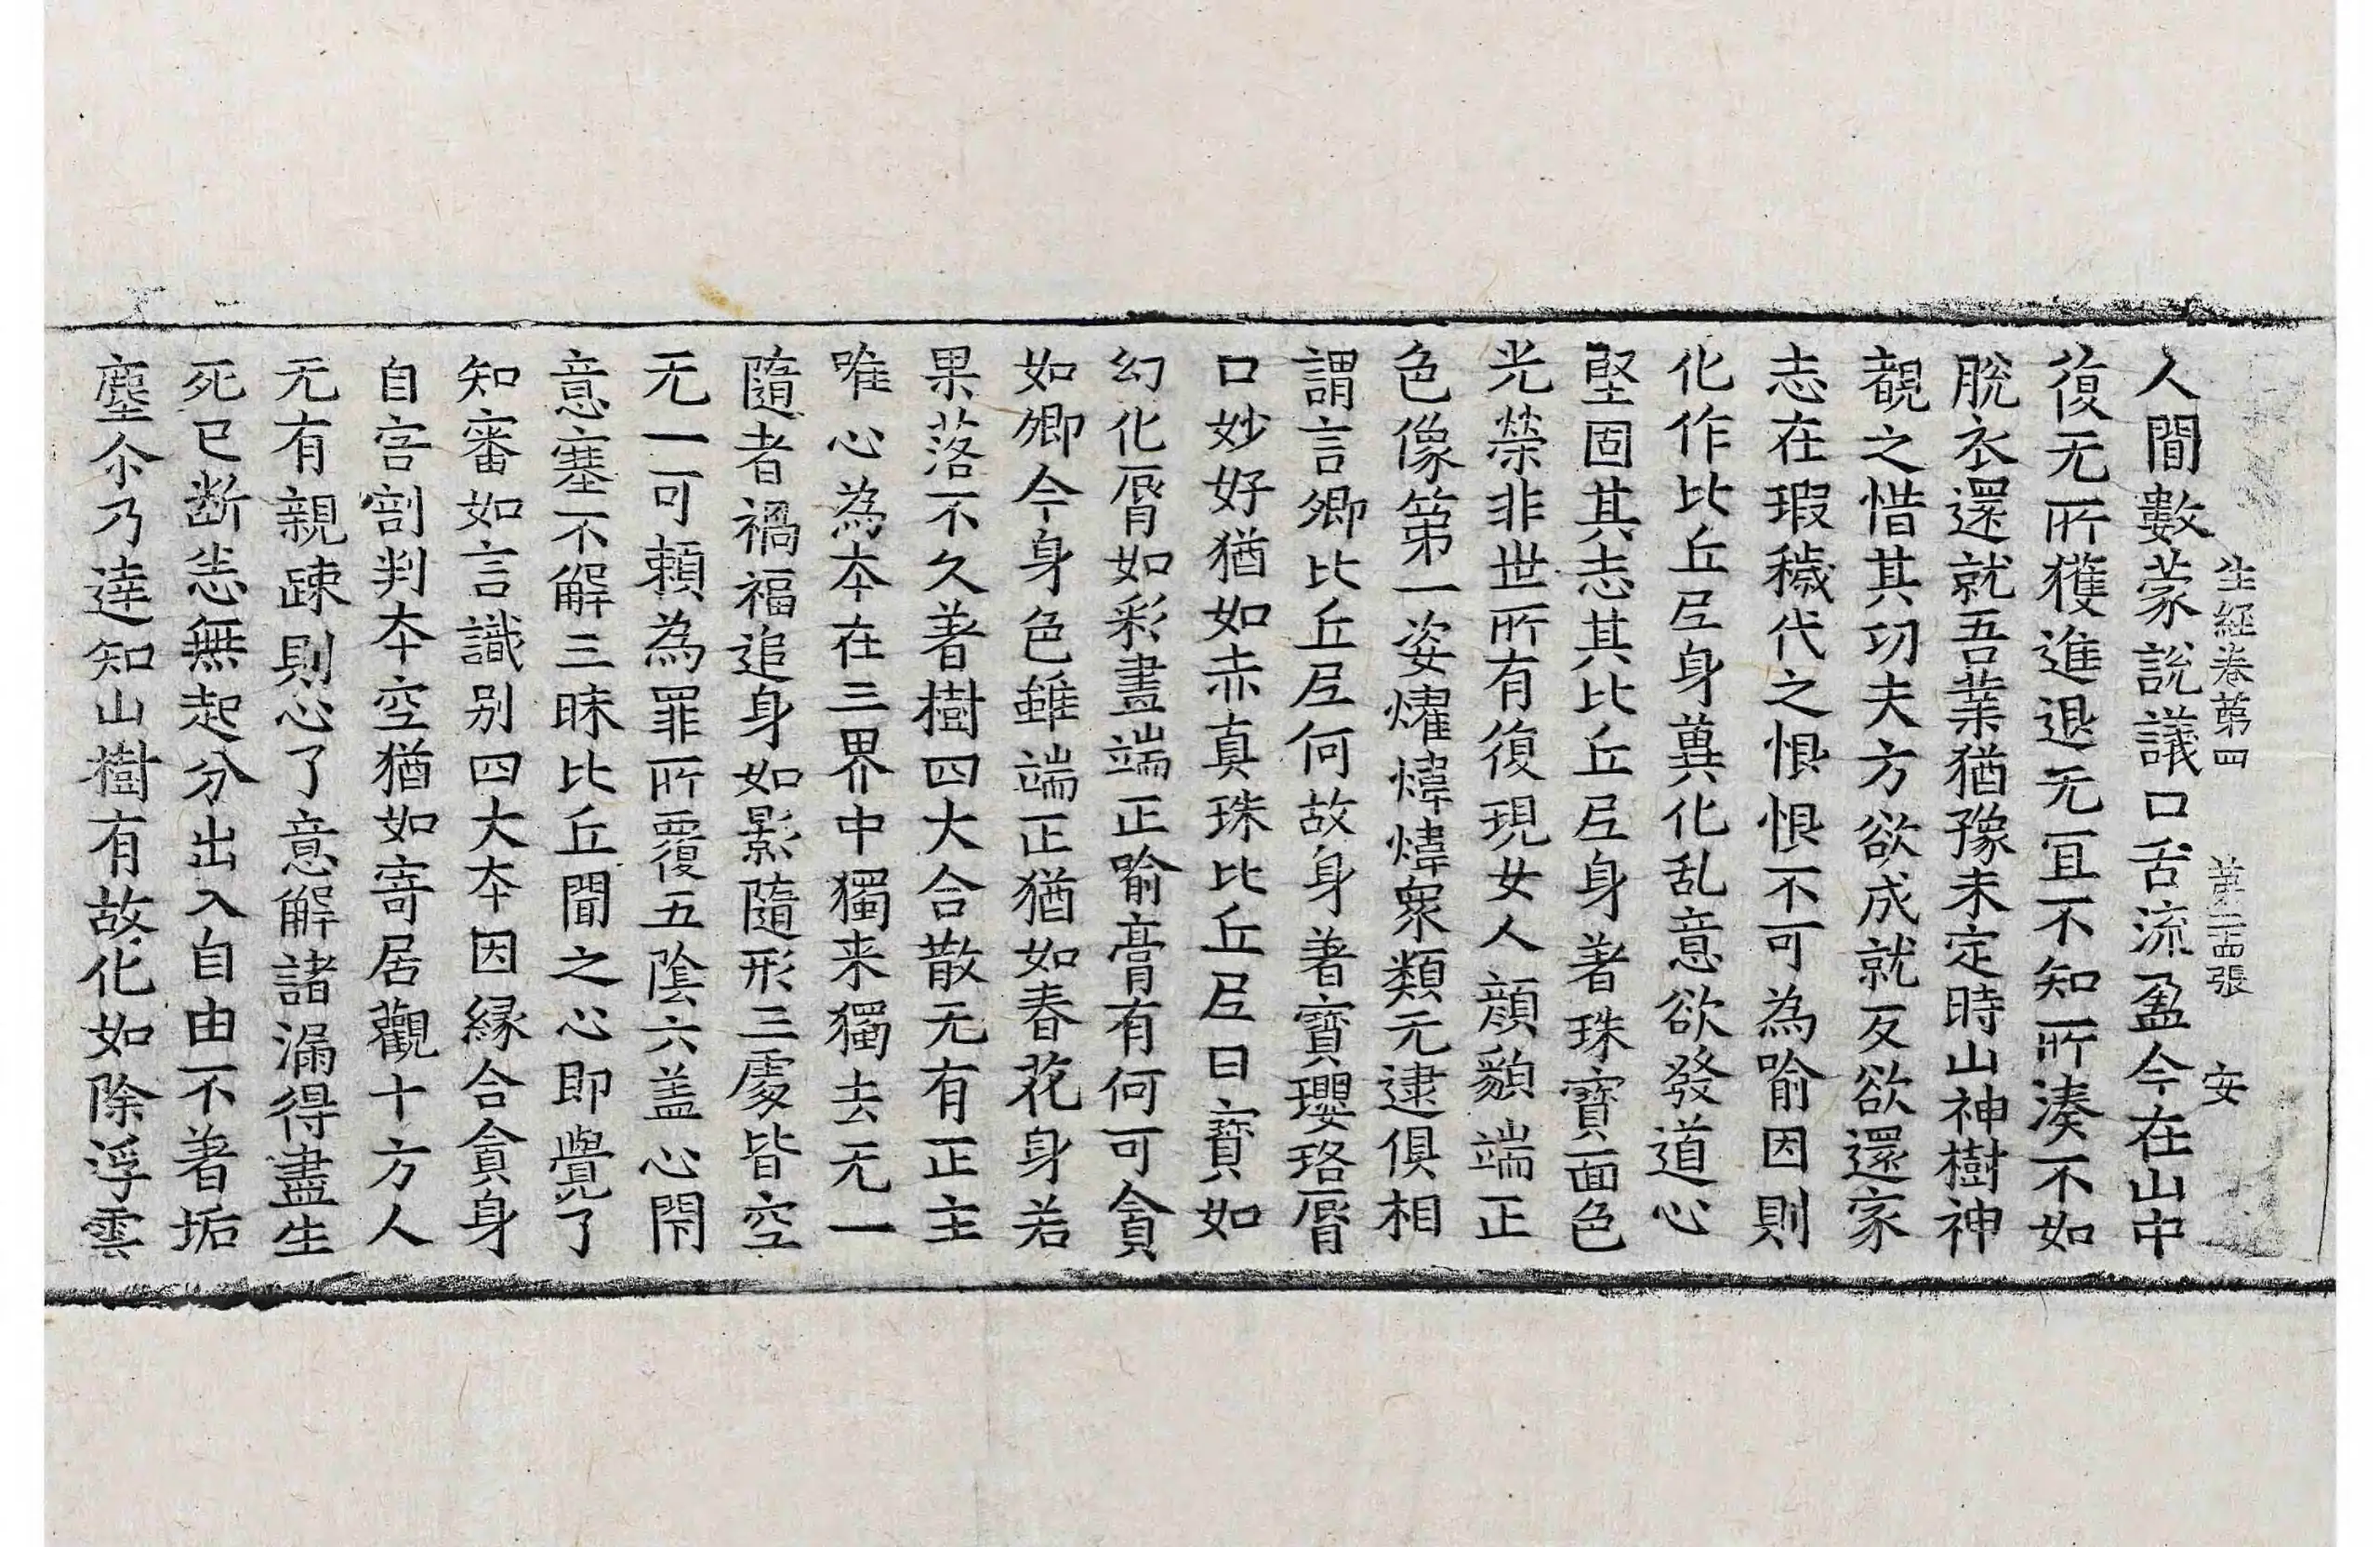 生經卷第四 第二十四張 安
人間數蒙說議口舌流盈今在山中
復无所獲進退无冝不知所湊不如
脫衣還就吾業猶豫未定時山神樹神
覩之惜其功夫方欲成就反欲還家
志在瑕穢代之恨恨不可為喻因則
化作比丘尼身冀化乱意欲發道心
堅固其志其比丘尼身著珠寶面色
光榮非世所有復現女人顔貌端正
色像第一姿燿煒煒衆類无逮俱相
謂言卿比丘尼何故身著寶瓔珞脣
口妙好猶如赤真珠比丘尼曰寶如
幻化脣如彩畫端正喻膏有何可貪
如卿今身色雖端正猶如春花身若
果落不久著樹四大合散无有正主
唯心為夲在三界中獨来獨去无一
隨者禍福追身如影隨形三處皆空
无一可賴為罪所覆五陰六盖心閇
意塞不解三昧比丘聞之心即覺了
知審如言識别四大夲因縁合貪身
自害剖判夲空猶如寄居觀十方人
无有親踈則心了意解諸漏得盡生
死已断恚無起分出入自由不著垢
塵尒乃達知山樹有故化如除浮雲